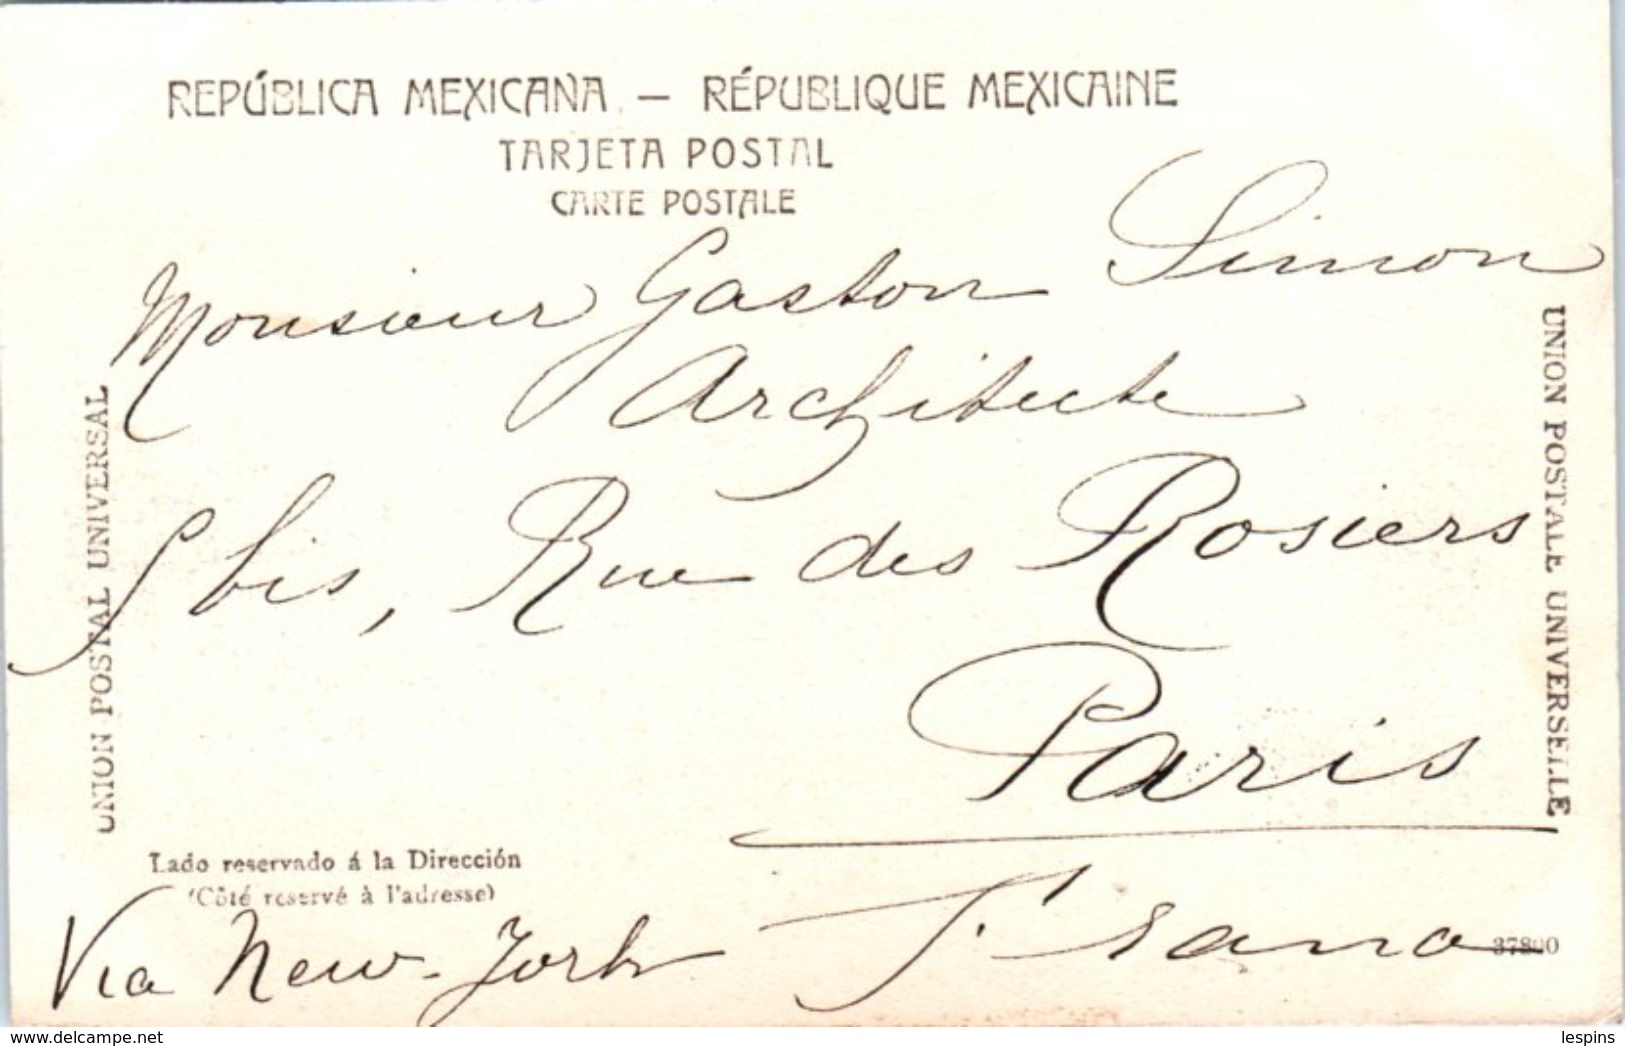 REPÚBLICA MEXICANA — RÉPUBLIQUE MEXICAINE
TARJETA POSTAL
CARTE POSTALE
Monsieur Gaston Simon
Architecte
bis, Rue des Rosiers
Paris
France
Via New-York
UNION POSTAL UNIVERSAL
UNION POSTALE UNIVERSELLE
Lado reservado á la Dirección
(Côté reservé à l'adresse)
delcampe.net
lespins